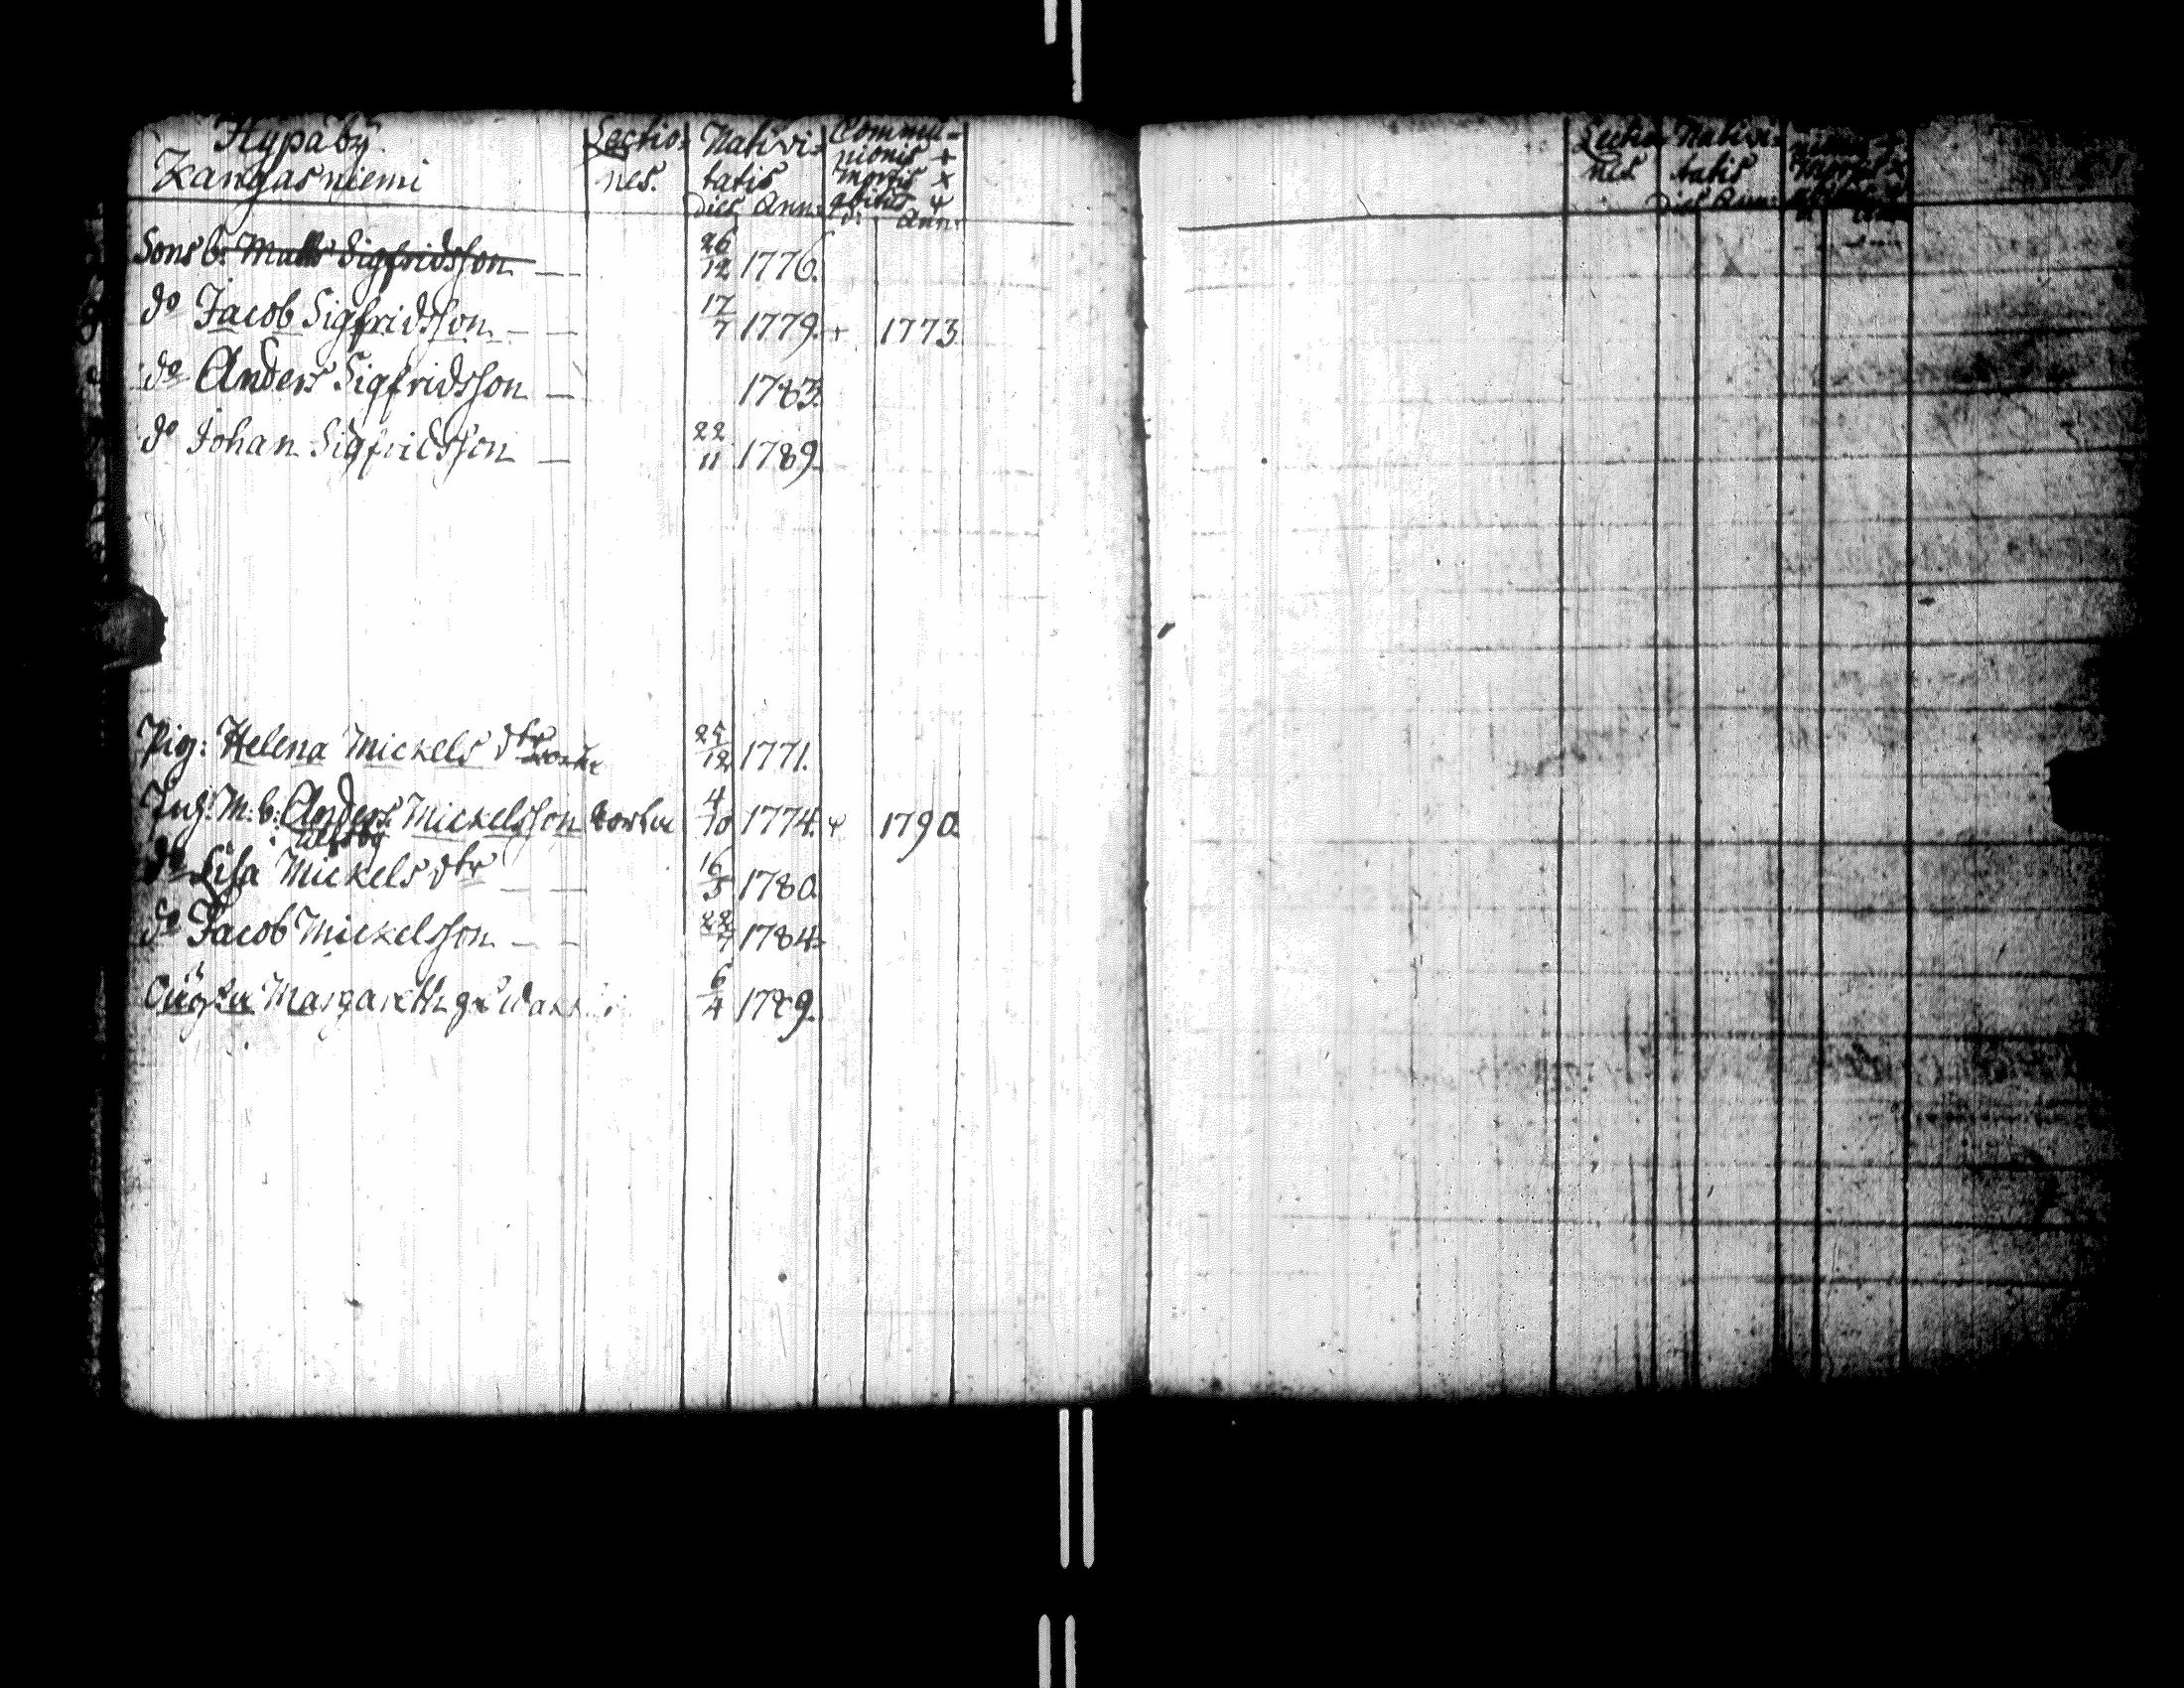 Hypäbÿ.
Kangasniemi
Lectio=
nes.
Nativi=
tatis
Dies Ann:
Commu=
nionis +
Mortis x
abitus ψ
D: Ann:
Sons b: Matts Sigfridsson — — 26/12 1776.
do Jacob Sigfridsson — — 17/7 1779. + 1773
do Anders Sigfridsson — 1783.
do Johan Sigfridsson — 22/11 1789.
Pig: Helena Mickels dtr 25/12 1771.
M: b: Anders Mickelsson 4/10 1774. ψ 1790.
do Lisa Mickels dtr — — 16/5 1780.
do Jacob Mickelsson — — 22/7 1784.
Margareth 6/4 1789.
Lectio
nes
Nativi=
tatis
Dies Ann:
nionis +
Mortis x